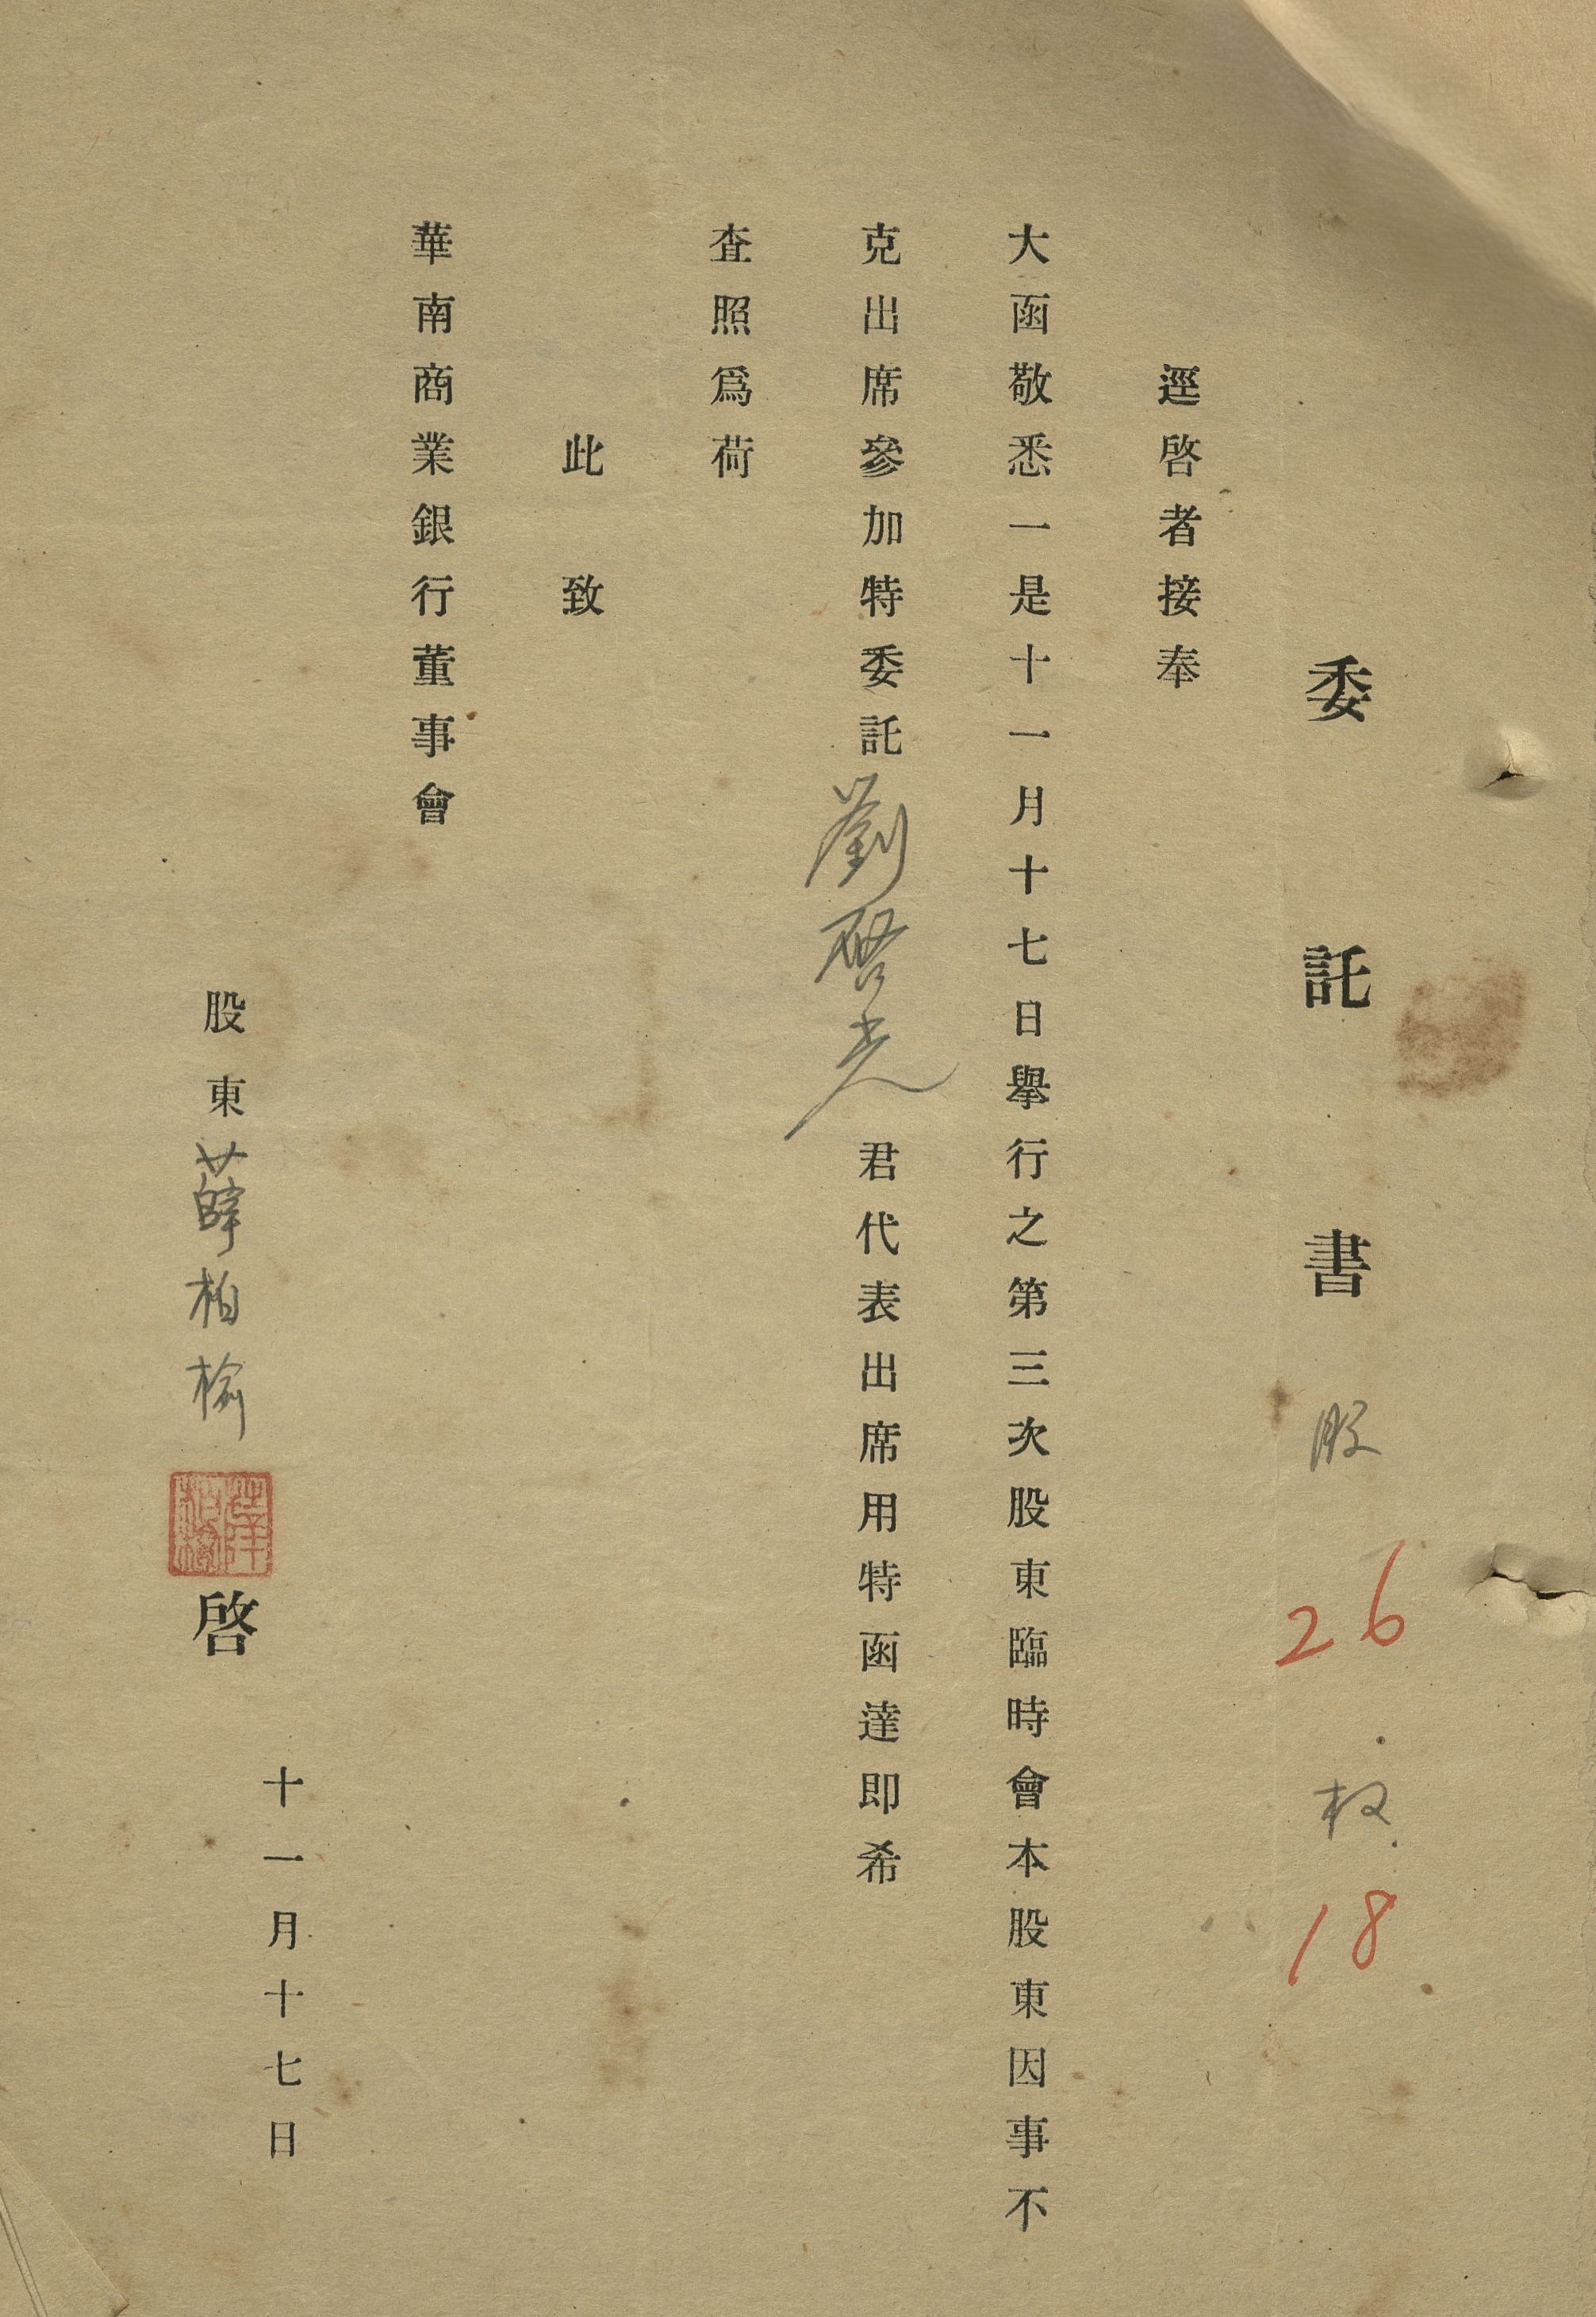 委託書 股 26 权 18
逕啓者接奉
大函敬悉一是十一月十七日舉行之第三次股東臨時會本股東因事不
克出席參加特委託劉啓光君代表出席用特函達即希
査照爲荷
此致
華南商業銀行董事會
股東薛柏榆啓
十一月十七日